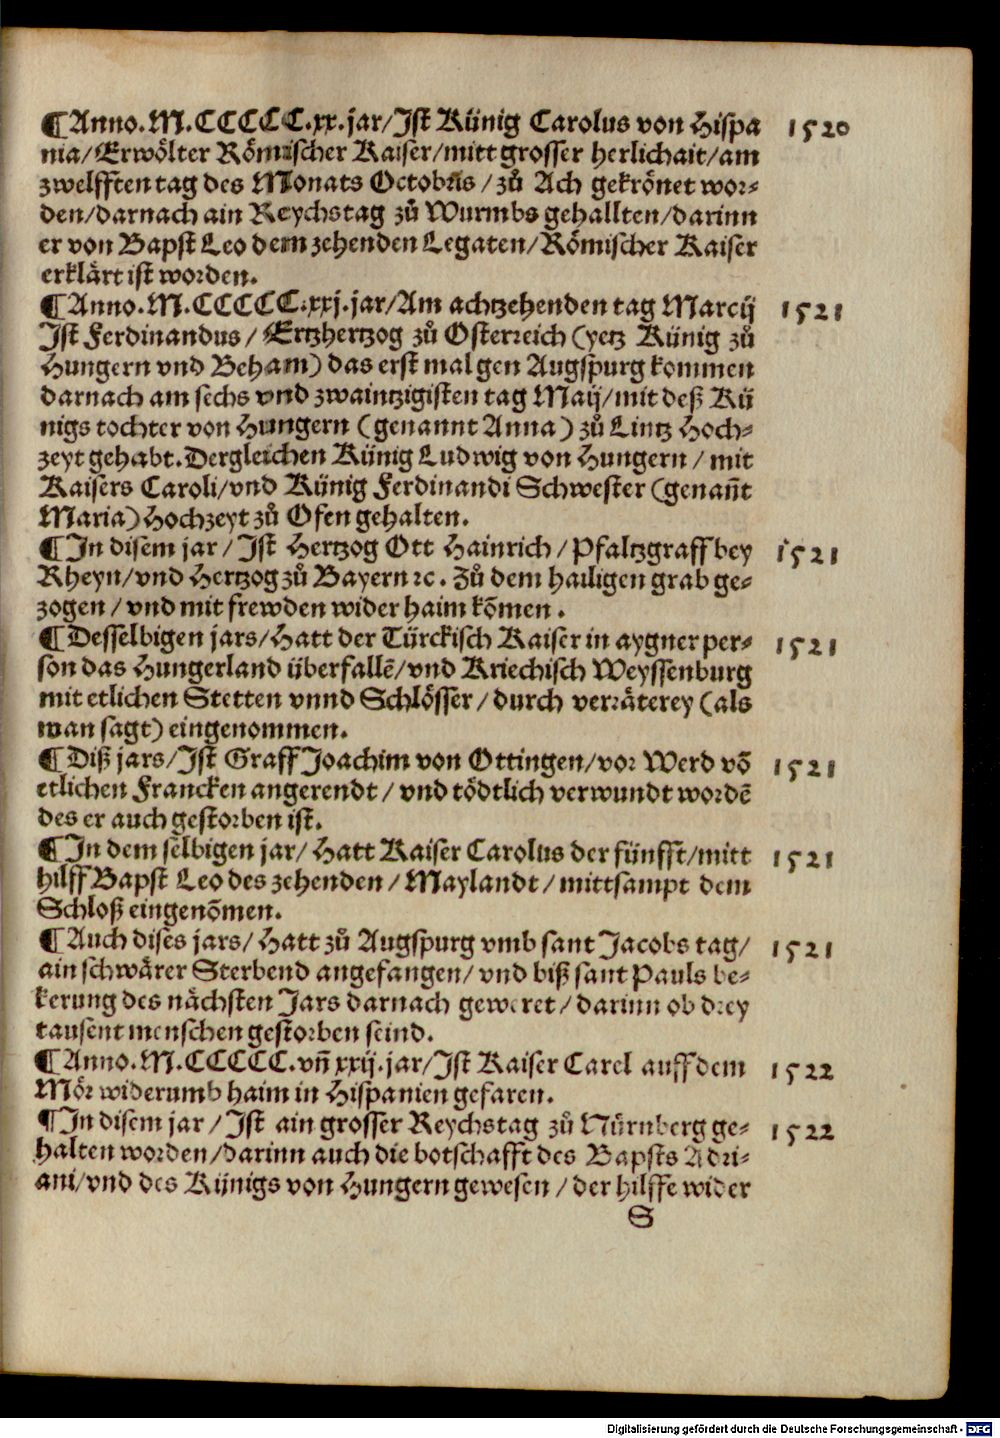 ¶Anno.M.CCCCC.xx.jar/Ist Künig Carolus von Hispa 1520
nia/Erwölter Römischer Kaiser/mitt grosser herlichait/am
zwelfften tag des Monats Octobris/zů Ach gekrönet wor-
den/darnach ain Reychstag zů Wurmbs gehallten/darinn
er von Bapst Leo dem zehenden Legaten/Römischer Kaiser
erklärt ist worden.
¶Anno.M.CCCCC.xxj.jar/Am achtzehenden tag Marcij 1521
Ist Ferdinandus/Ertzhertzog zů Osterreich (yetz Künig zů
Hungern vnd Beham) das erst mal gen Augspurg kommen
darnach am sechs vnd zwaintzigisten tag Maij/mit deß Kü
nigs tochter von Hungern (genannt Anna) zů Lintz Hoch-
zeyt gehabt. Dergleichen Künig Ludwig von Hungern/mit
Kaisers Caroli/vnd Künig Ferdinandi Schwester (genañt
Maria) Hochzeyt zů Ofen gehalten.
¶In disem jar/Ist Hertzog Ott Hainrich/Pfaltzgraff bey 1521
Rheyn/vnd Hertzog zů Bayern ꝛc. Zů dem hailigen grab ge-
zogen/vnd mit frewden wider haim kõmen.
¶Desselbigen jars/Hatt der Türckisch Kaiser in aygner per- 1521
son das Hungerland überfallẽ/vnd Kriechisch Weyssenburg
mit etlichen Stetten vnnd Schlösser/durch verräterey (als
man sagt) eingenommen.
¶Diß jars/Ist Graff Joachim von Ottingen/vor Werd võ 1521
etlichen Francken angerendt/vnd tödtlich verwundt wordẽ
des er auch gestorben ist.
¶In dem selbigen jar/Hatt Kaiser Carolus der fünfft/mitt 1521
hilff Bapst Leo des zehenden/Maylandt/mittsampt dem
Schloß eingenõmen.
¶Auch dises jars/Hatt zů Augspurg vmb sant Jacobs tag/ 1521
ain schwärer Sterbend angefangen/vnd biß sant Pauls be-
kerung des nächsten Jars darnach geweret/darinn ob drey
tausent menschen gestorben seind.
¶Anno.M.CCCCC.vñ xxij.jar/Ist Kaiser Carel auff dem 1522
Mör widerumb haim in Hispanien gefaren.
¶In disem jar/Ist ain grosser Reychstag zů Nürnberg ge- 1522
halten worden/darinn auch die botschafft des Bapsts Adri-
ani/vnd des Künigs von Hungern gewesen/der hilffe wider
S
Digitalisierung gefördert durch die Deutsche Forschungsgemeinschaft - DFG